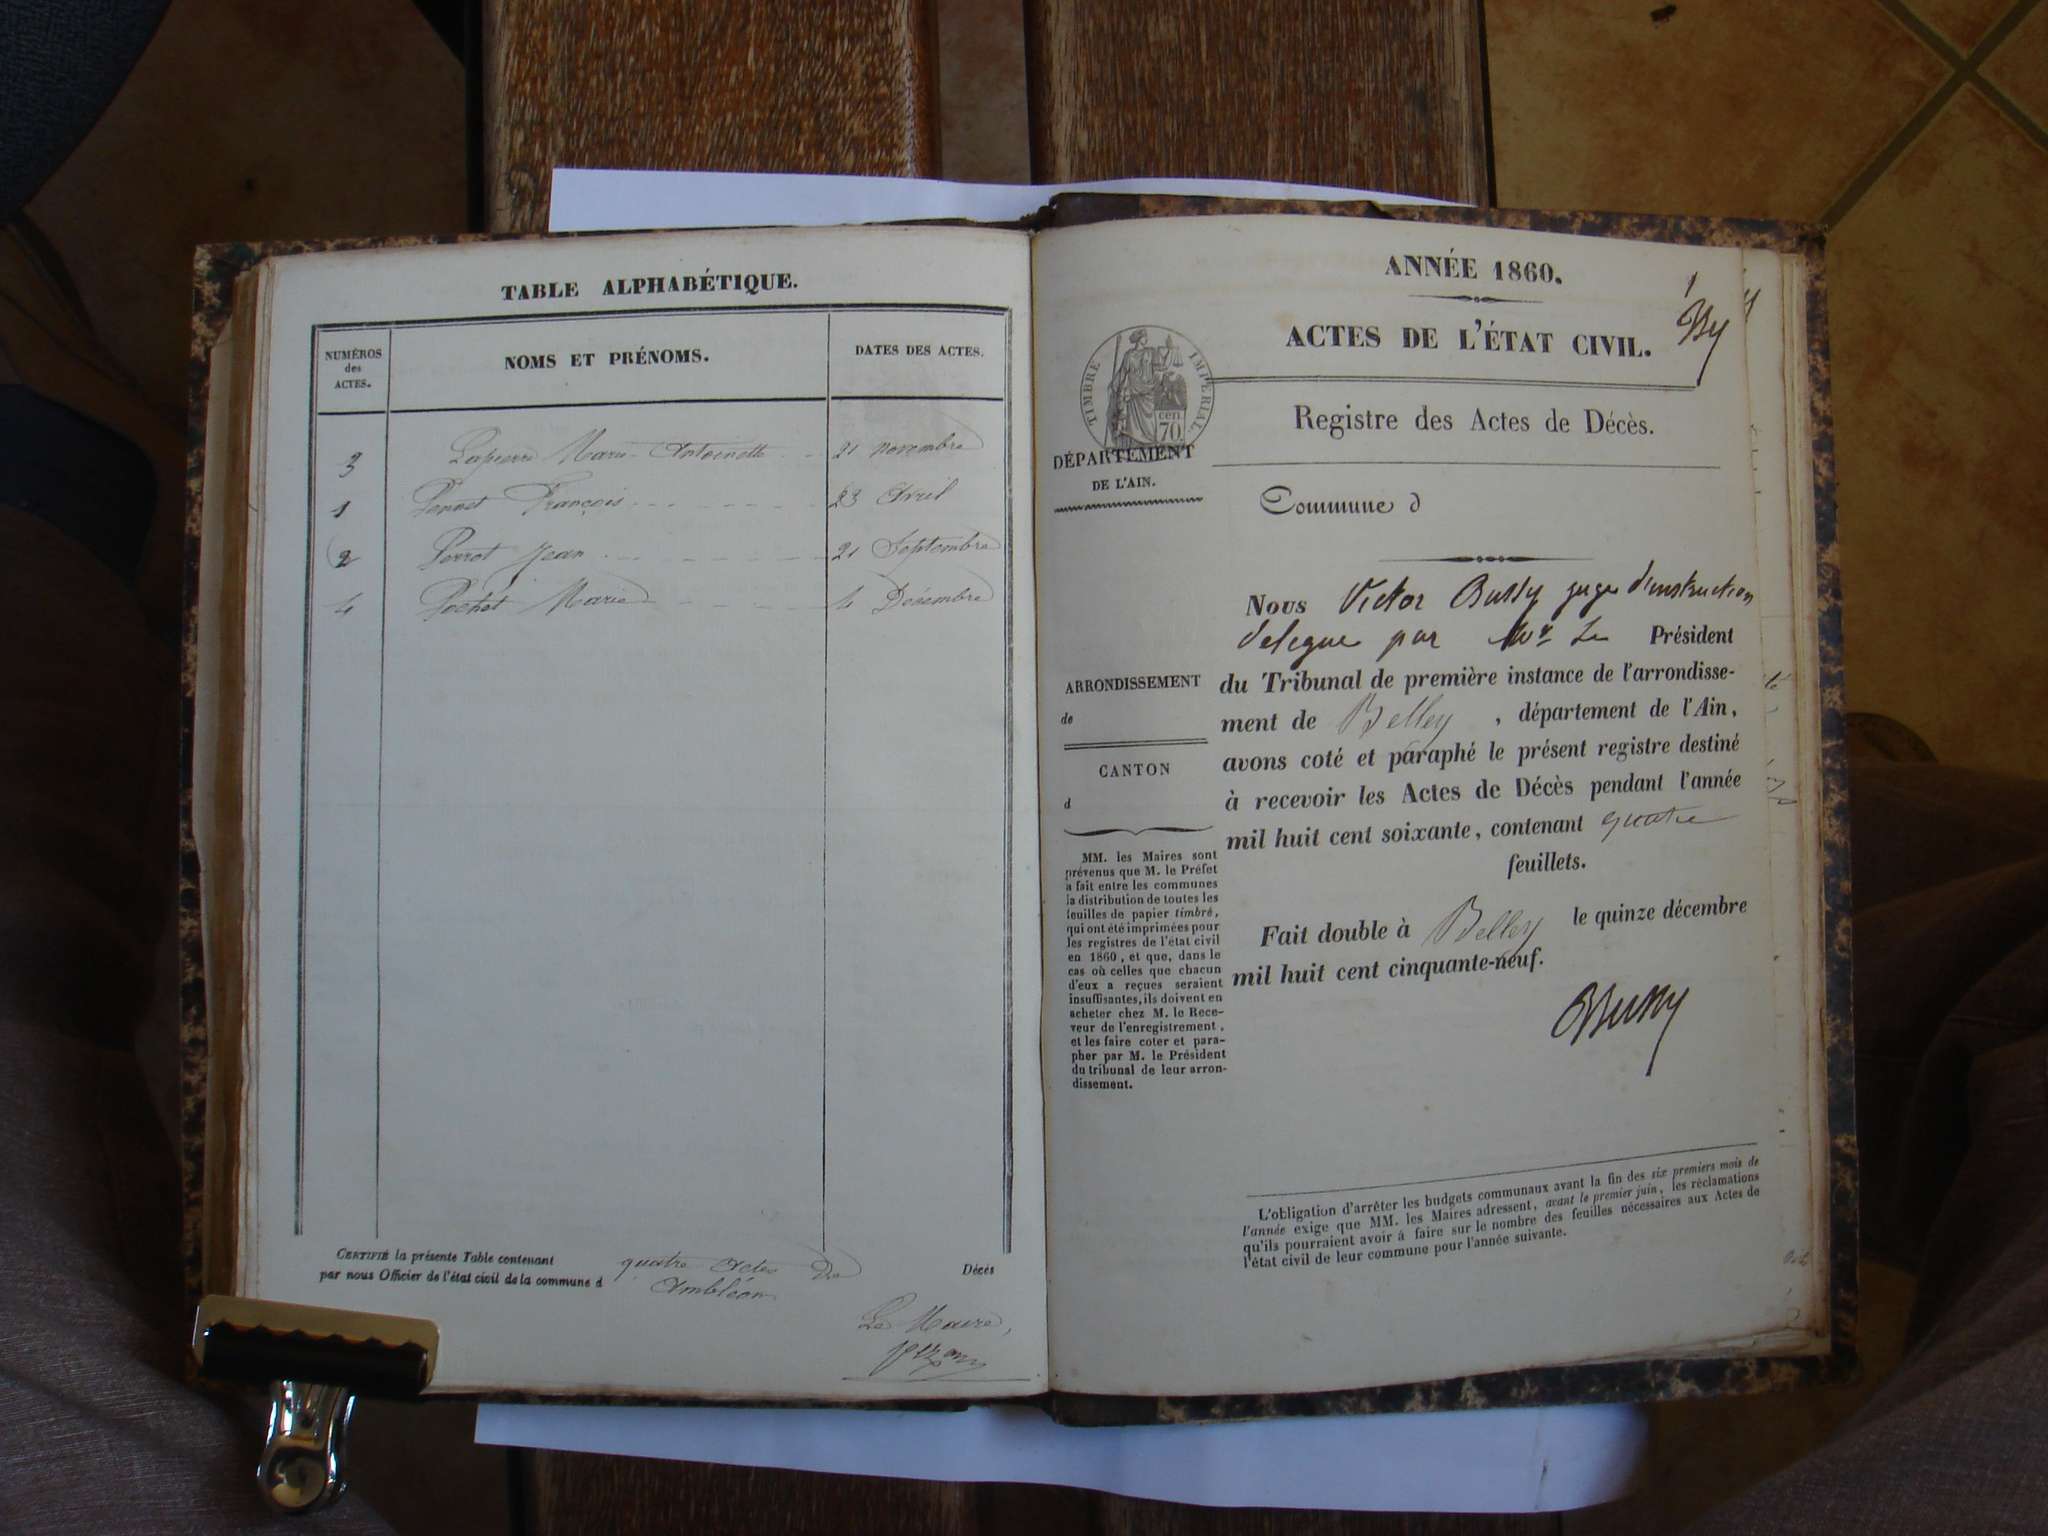 TABLE ALPHABÉTIQUE.
NUMÉROS
des
ACTES.
NOMS ET PRÉNOMS.
DATES DES ACTES.
3 Lapierre Marie-Antoinette 21 novembre
1 Ponnet François 23 Avril
2 Perrot Jean 21 Septembre
4 Pochet Marie 4 Décembre
CERTIFIÉ la présente Table contenant quatre Actes De Décès
par nous Officier de l'état civil de la commune d Ambléon
Le Maire,
ANNÉE 1860.
1
ACTES DE L'ÉTAT CIVIL.
By
TIMBRE IMPÉRIAL
cen
70
DÉPARTEMENT
DE L'AIN.
Registre des Actes de Décès.
Commune d
ARRONDISSEMENT
de
CANTON
d
MM. les Maires sont
prévenus que M. le Préfet
a fait entre les communes
la distribution de toutes les
feuilles de papier timbré,
qui ont été imprimées pour
les registres de l'état civil
en 1860, et que, dans le
cas où celles que chacun
d'eux a reçues seraient
insuffisantes, ils doivent en
acheter chez M. le Rece-
veur de l'enregistrement,
et les faire coter et para-
pher par M. le Président
du tribunal de leur arron-
dissement.
Nous Victor Bussy juge d'instruction
delegue par Mr Le Président
du Tribunal de première instance de l'arrondisse-
ment de Belley, département de l'Ain,
avons coté et paraphé le présent registre destiné
à recevoir les Actes de Décès pendant l'année
mil huit cent soixante, contenant quatre
feuillets.
Fait double à Belley le quinze décembre
mil huit cent cinquante-neuf.
Bussy
L'obligation d'arrêter les budgets communaux avant la fin des six premiers mois de
l'année exige que MM. les Maires adressent, avant le premier juin, les réclamations
qu'ils pourraient avoir à faire sur le nombre des feuilles nécessaires aux Actes de
l'état civil de leur commune pour l'année suivante.